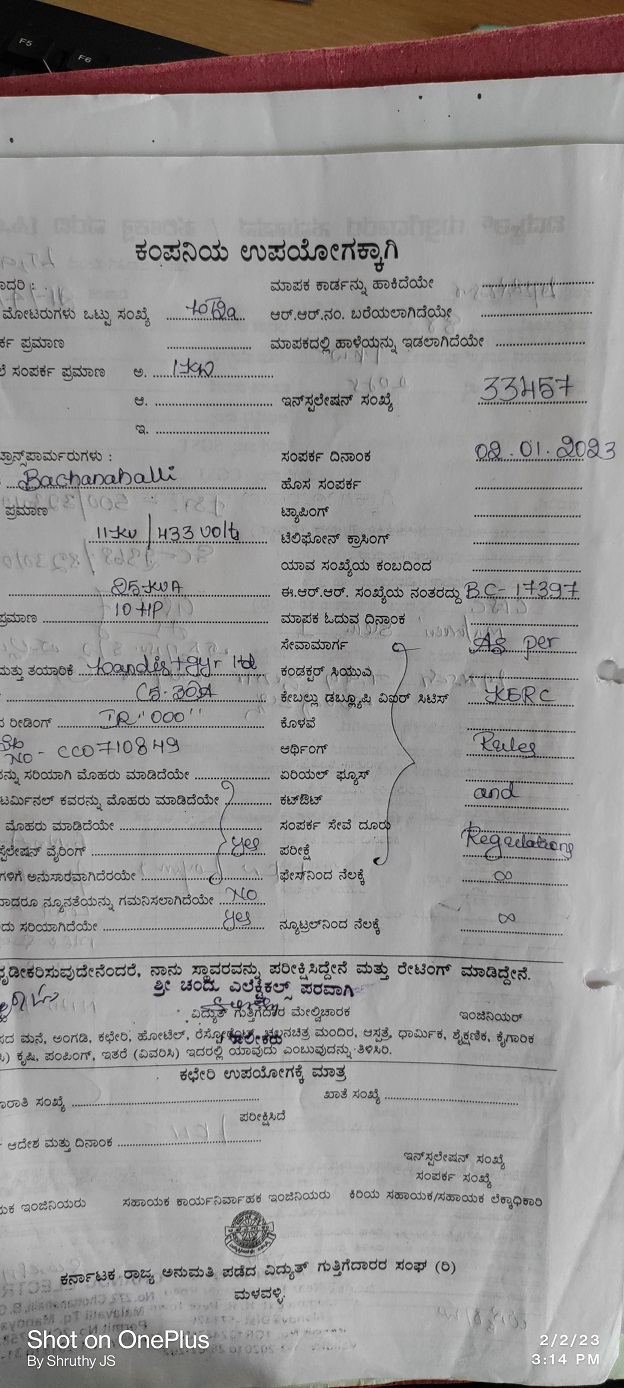 F5
F6
ಕಂಪನಿಯ ಉಪಯೋಗಕ್ಕಾಗಿ
ಮಾಪಕ ಕಾರ್ಡನ್ನು ಹಾಕಿದೆಯೇ
ಮೋಟರುಗಳು ಒಟ್ಟು ಸಂಖ್ಯೆ ಆರ್.ಆರ್.ನಂ. ಬರೆಯಲಾಗಿದೆಯೇ
ಪ್ರಮಾಣ ಮಾಪಕದಲ್ಲಿ ಹಾಳೆಯನ್ನು ಇಡಲಾಗಿದೆಯೇ
ಸಂಪರ್ಕ ಪ್ರಮಾಣ ಅ. 1 KW
ಆ. ಇನ್‌ಸ್ಟಲೇಷನ್ ಸಂಖ್ಯೆ 33457
ಇ.
ಟ್ರಾನ್ಸ್‌ಪಾರ್ಮರುಗಳು : ಸಂಪರ್ಕ ದಿನಾಂಕ 02.01.2023
Bachanahalli ಹೊಸ ಸಂಪರ್ಕ
ಪ್ರಮಾಣ ಟ್ಯಾಪಿಂಗ್
11 KV / 433 Volts ಟೆಲಿಫೋನ್ ಕ್ರಾಸಿಂಗ್
ಯಾವ ಸಂಖ್ಯೆಯ ಕಂಬದಿಂದ
25 KVA ಈ.ಆರ್.ಆರ್. ಸಂಖ್ಯೆಯ ನಂತರದ್ದು BC-17397
ಪ್ರಮಾಣ 10 HP ಮಾಪಕ ಓದುವ ದಿನಾಂಕ
ಸೇವಾಮಾರ್ಗ As per
ಮತ್ತು ತಯಾರಿಕೆ Landis+gyr ltd ಕಂಡಕ್ಟರ್ ಸಿಯುವಿ
C5-30A ಕೇಬಲ್ಲು ಡಬ್ಲ್ಯೂಪಿ ವಿಐರ್ ಸಿಟಿಸ್ KERC
ರೀಡಿಂಗ್ IR "000" ಕೊಳವೆ
NO - CC0710849 ಆರ್ಥಿಂಗ್ Rules
ಸರಿಯಾಗಿ ಮೊಹರು ಮಾಡಿದೆಯೇ ಏರಿಯಲ್ ಫ್ಯೂಸ್
ಟರ್ಮಿನಲ್ ಕವರನ್ನು ಮೊಹರು ಮಾಡಿದೆಯೇ ಕಟ್‌ಔಟ್ and
ಮೊಹರು ಮಾಡಿದೆಯೇ ಸಂಪರ್ಕ ಸೇವೆ ದೂರು
ವೈರಿಂಗ್ Yes ಪರೀಕ್ಷೆ Regulations
ಅನುಸಾರವಾಗಿದೆರಯೇ ಫೇಸ್‌ನಿಂದ ನೆಲಕ್ಕೆ ∞
ನ್ಯೂನತೆಯನ್ನು ಗಮನಿಸಲಾಗಿದೆಯೇ NO
ಸರಿಯಾಗಿದೆಯೇ Yes ನ್ಯೂಟ್ರಲ್‌ನಿಂದ ನೆಲಕ್ಕೆ ∞
ದೃಡೀಕರಿಸುವುದೇನೆಂದರೆ, ನಾನು ಸ್ಥಾವರವನ್ನು ಪರೀಕ್ಷಿಸಿದ್ದೇನೆ ಮತ್ತು ರೇಟಿಂಗ್ ಮಾಡಿದ್ದೇನೆ.
ಶ್ರೀ ಚಂದು ಎಲೆಕ್ಟ್ರಿಕಲ್ಸ್ ಪರವಾಗಿ
ವಿದ್ಯುತ್ ಗುತ್ತಿಗೆದಾರ ಮೇಲ್ವಿಚಾರಕ ಇಂಜಿನಿಯರ್
ಮನೆ, ಅಂಗಡಿ, ಕಛೇರಿ, ಹೋಟೆಲ್, ಮಂದಿರ, ಆಸ್ಪತ್ರೆ, ಧಾರ್ಮಿಕ, ಶೈಕ್ಷಣಿಕ, ಕೈಗಾರಿಕ
ಕೃಷಿ, ಪಂಪಿಂಗ್, ಇತರೆ (ವಿವರಿಸಿ) ಇದರಲ್ಲಿ ಯಾವುದು ಎಂಬುವುದನ್ನು ತಿಳಿಸಿರಿ.
ಮಾಲೀಕರು
ಕಛೇರಿ ಉಪಯೋಗಕ್ಕೆ ಮಾತ್ರ
ಸಂಖ್ಯೆ ಖಾತೆ ಸಂಖ್ಯೆ
ಪರೀಕ್ಷಿಸಿದೆ
ಆದೇಶ ಮತ್ತು ದಿನಾಂಕ
ಇನ್‌ಸ್ಟಲೇಷನ್ ಸಂಖ್ಯೆ
ಸಂಪರ್ಕ ಸಂಖ್ಯೆ
ಇಂಜಿನಿಯರು ಸಹಾಯಕ ಕಾರ್ಯನಿರ್ವಾಹಕ ಇಂಜಿನಿಯರು ಕಿರಿಯ ಸಹಾಯಕ/ಸಹಾಯಕ ಲೆಕ್ಕಾಧಿಕಾರಿ
ಕರ್ನಾಟಕ ರಾಜ್ಯ ಅನುಮತಿ ಪಡೆದ ವಿದ್ಯುತ್ ಗುತ್ತಿಗೆದಾರರ ಸಂಘ (ರಿ)
ಮಳವಳ್ಳಿ.
Shot on OnePlus
By Shruthy JS
2/2/23
3:14 PM